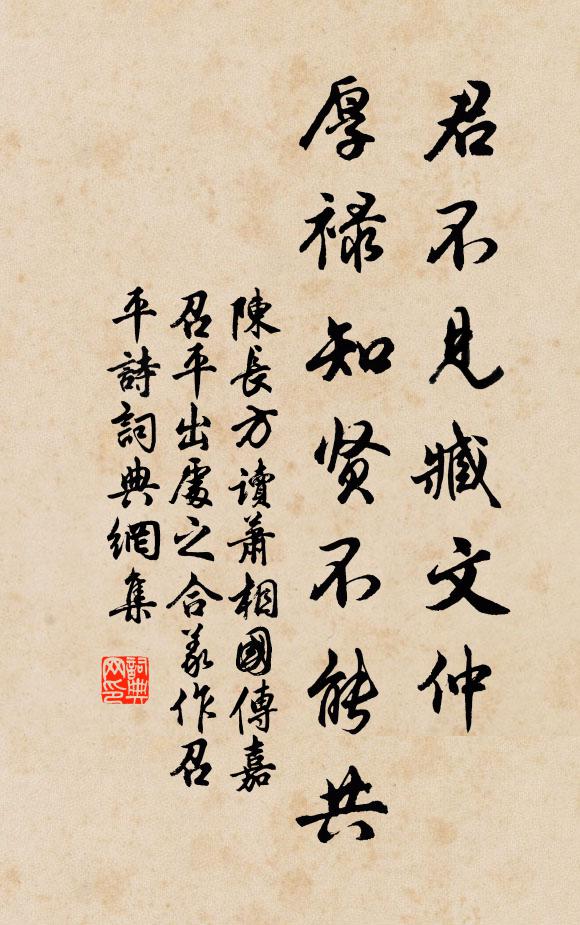 君不見臧文仲
厚禄知贤不能共
陳長方讀蕭相國傳嘉
召平出處之合義作召
平詩詞典網集
詞典
网印